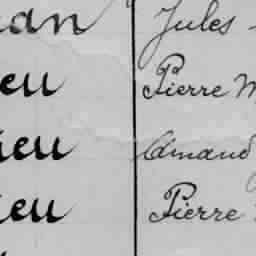 an Jules
eu Pierre M
ieu Amand
ieu Pierre